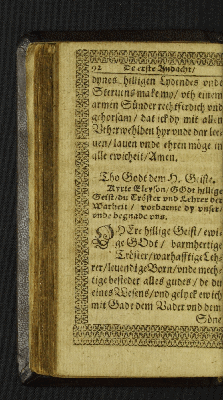 92 De erste Andacht/
dynes hilligen Lydendes vnde
Steruens make my/ vth einem
armen Sünder rechtferdich vnd
gehorsam/ dat ick dy mit allen
Vtherwehlden hyr vnde dar lee-
uen/ lauen vnde ehren möge in
alle ewicheit/ Amen.
Tho Godt dem H. Geiste.
Kyrie Eleyson/ GOdt hillige
Geist/ du Tröster vnd Lehrer der
Warheit/ vorbarme dy vnser/
vnde begnade vns.
O HErr hillige Geist/ ewi-
ge GOdt/ barmhertige
Tröster/ warhafftige Leh-
rer/ leuendige Born/ vnde mech-
tige besitter alles gudes/ de du
eines Wesens/ vnd gelyck ewich
mit Gadt dem Vader vnd dem
Söne